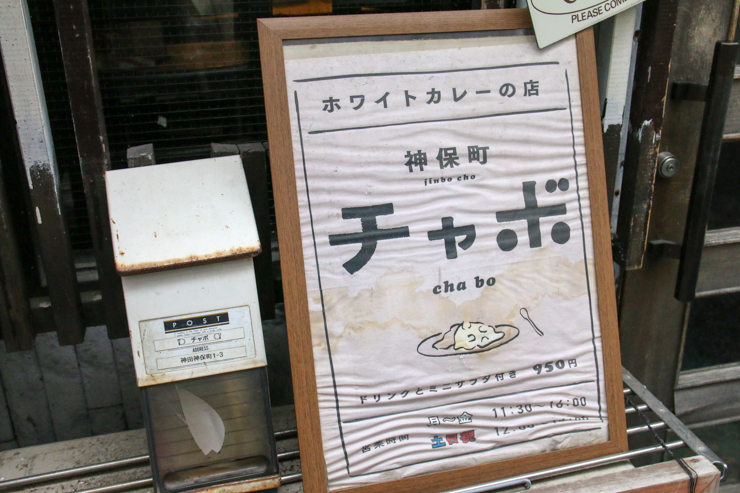 PLEASE COM
ホワイトカレーの店
神保町
jinbo cho
チャボ
cha bo
ドリンクとミニサラダ付き 950円
営業時間
月〜金 11:30〜16:00
土日祝
POST
チャボ
ADDRESS
神田神保町1-3